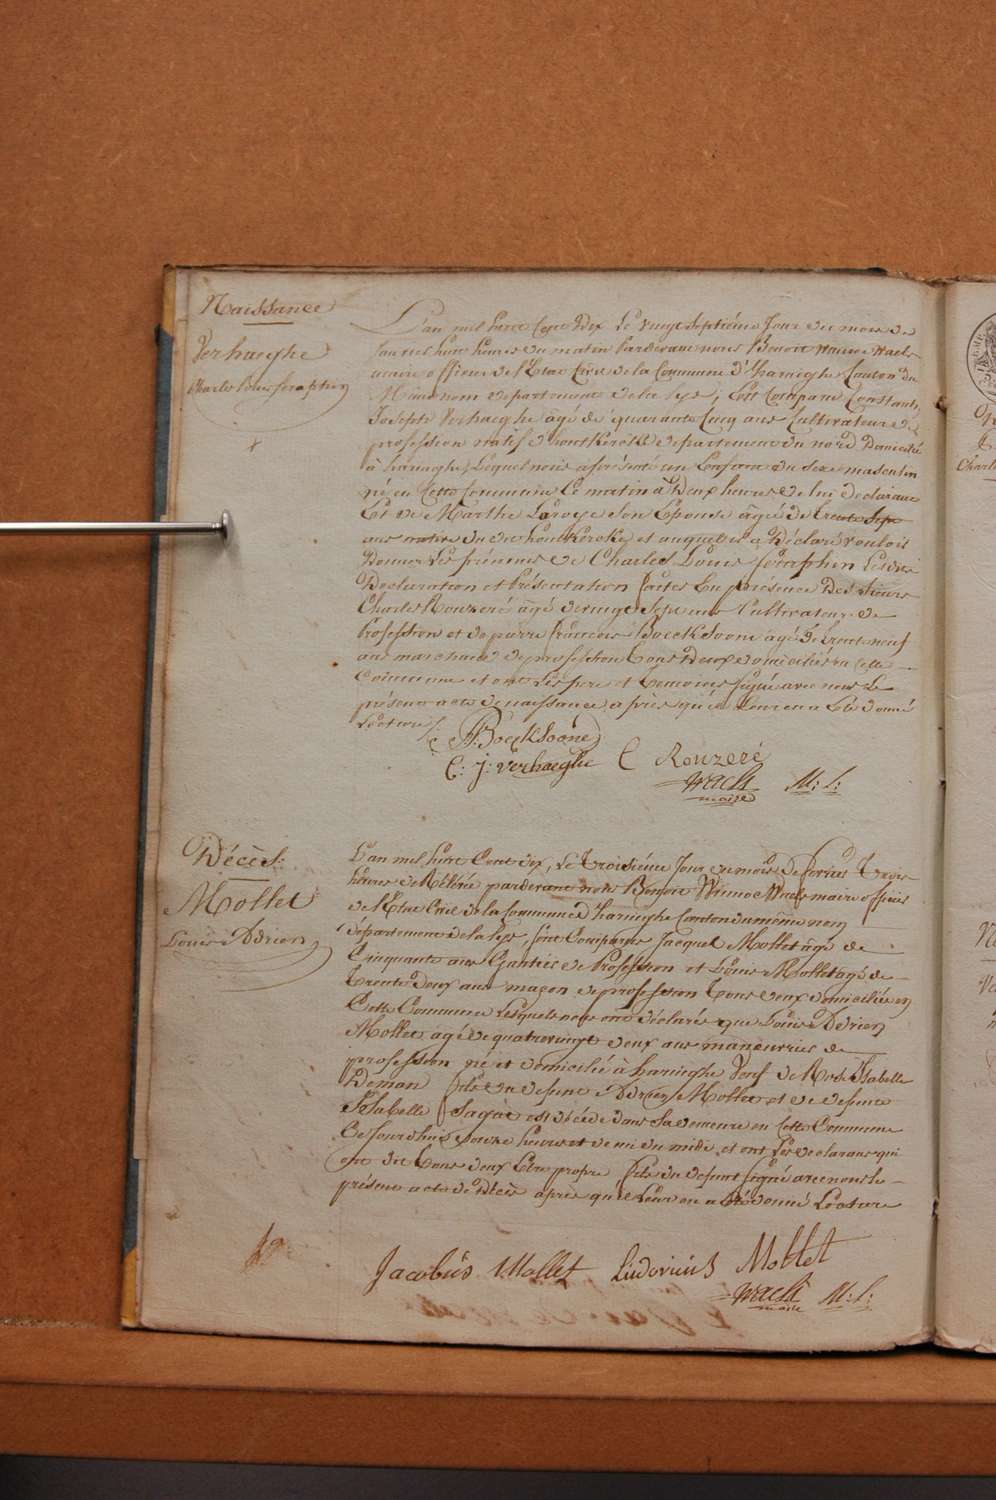 Naissance
Verhaeghe
Charles Louis Seraphin
L'an mil huit Cent Dix le vingt Septiéme Jour du mois de
Janvier huit heures du matin Pardevant nous Benoit Winnoc Waels
maire officier de l'Etat Civil de la Commune d'Haringhe Canton du
Même nom departement de la Lys, Est Comparu Constant
Joseph Verhaeghe âgé de quarante Cinq ans Cultivateur de
profession natif d'houtkercke departement du nord Domicilié
à haringhe, Lequel nous à présenté un Enfant du Sexe masculin
né en Cette Commune Ce matin à Deux heures de lui declarant
Et de Marthe Laroye Son Epouse âgée de trente Sept
ans native du dit houtkercke, et auquel il a Déclaré vouloir
Donner Les prénoms de Charles Louis Seraphin Lesdites
Declaration et Présentation faites En présence Des Sieurs
Charles Rouzeré âgé de vingt Sept ans Cultivateur de
Profession et de pierre françois Boeckaoone agé de trente neuf
ans marchand de profession tous Deux domiciliés en Cette
Commune et ont Les pere et temoins signé avec nous Le
présent acte de naissance après qu'il Leur en a Eté donné
Lecture /:
P. F. Boecksoone
C: J: Verhaeghe C Rouzeré
Waels M: L:
maire
Décès:
Mollet
Louis Adrien
L'an mil huit Cent dix, Le troisiéme Jour du mois de fevrier Trois
heures de Rélévée pardevant nous Benoit Winnoc Waels maire officier
de l'Etat Civil de la Commune d'haringhe Canton du même nom
departement de la Lys, sont Comparus Jacques Mollet âgé de
Cinquante ans Gantier de Profession et Louis Mollet agé de
trente deux ans maçon de profession tous deux domiciliés en
Cette Commune Lesquels nous ont déclarés que Louis Adrien
Mollet agé de quatrevingt deux ans manouvrier de
profession né et domicilié à haringhe Veuf de Marie Isabelle
Deman fils du defunt Adrien Mollet et de defunte
Isabelle Sagaé est décédé dans Sa demeure en Cette Commune
Cejourdhui à onze heures et demi du midi, et ont Les declarans qui
ont dit tous deux Etre propre fils du defunt signé avec nous le
présent acte de Décès après qu'il Leur en a Eté donné Lecture
Jacobús Mollet Ludovicús Mollet
Waels M: L:
maire